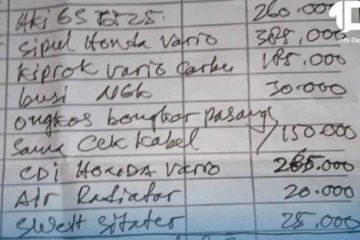 Aki GS 260.000
Sipul Honda Vario 385.000
Kiprok Vario Carbu 185.000
busi NGK 30.000
ongkos bongkar pasang
sama Cek Kabel 150.000
CDI HONDA Vario 265.000
Air Radiator 20.000
Sweth Sitater 25.000